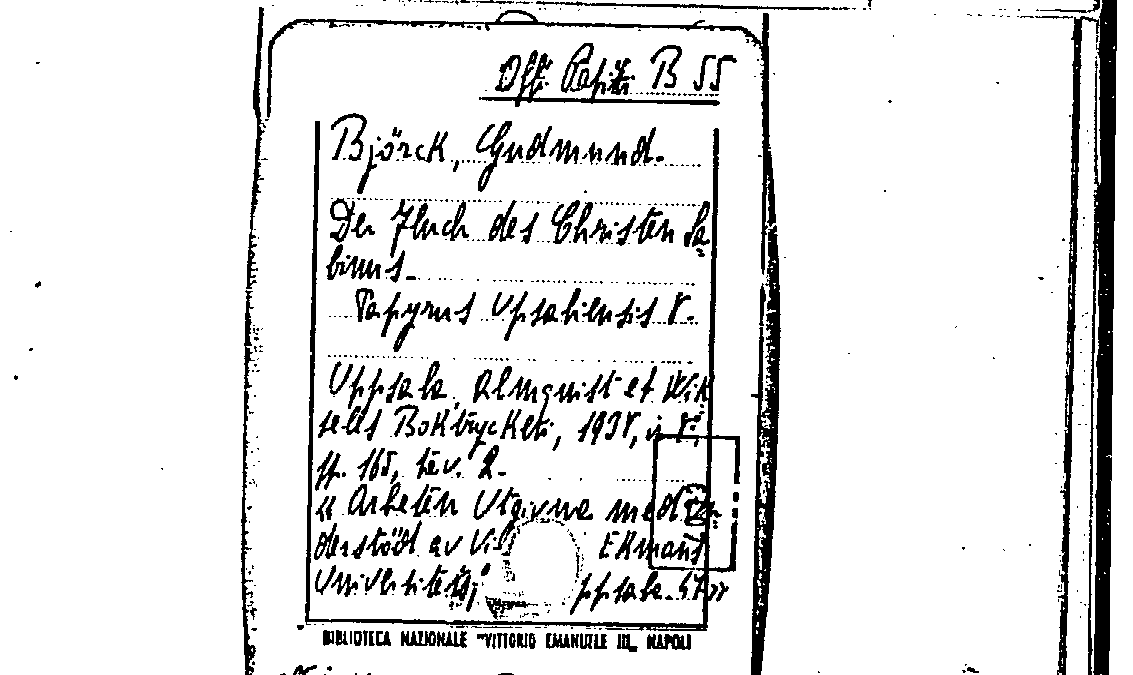 Off. Papiri B 55
Björck, Gudmund.
Der Fluch des Christen Sa
binus.
Papyrus Upsaliensis 8.
Uppsala, Almquist et Wik
sells Boktryckeri, 1938, in 8°,
pp. 165, tav. 2.
« Arbeten Utgivna med
derstöd av Ekmans
Universitets
BIBLIOTECA NAZIONALE "VITTORIO EMANUELE III„ NAPOLI